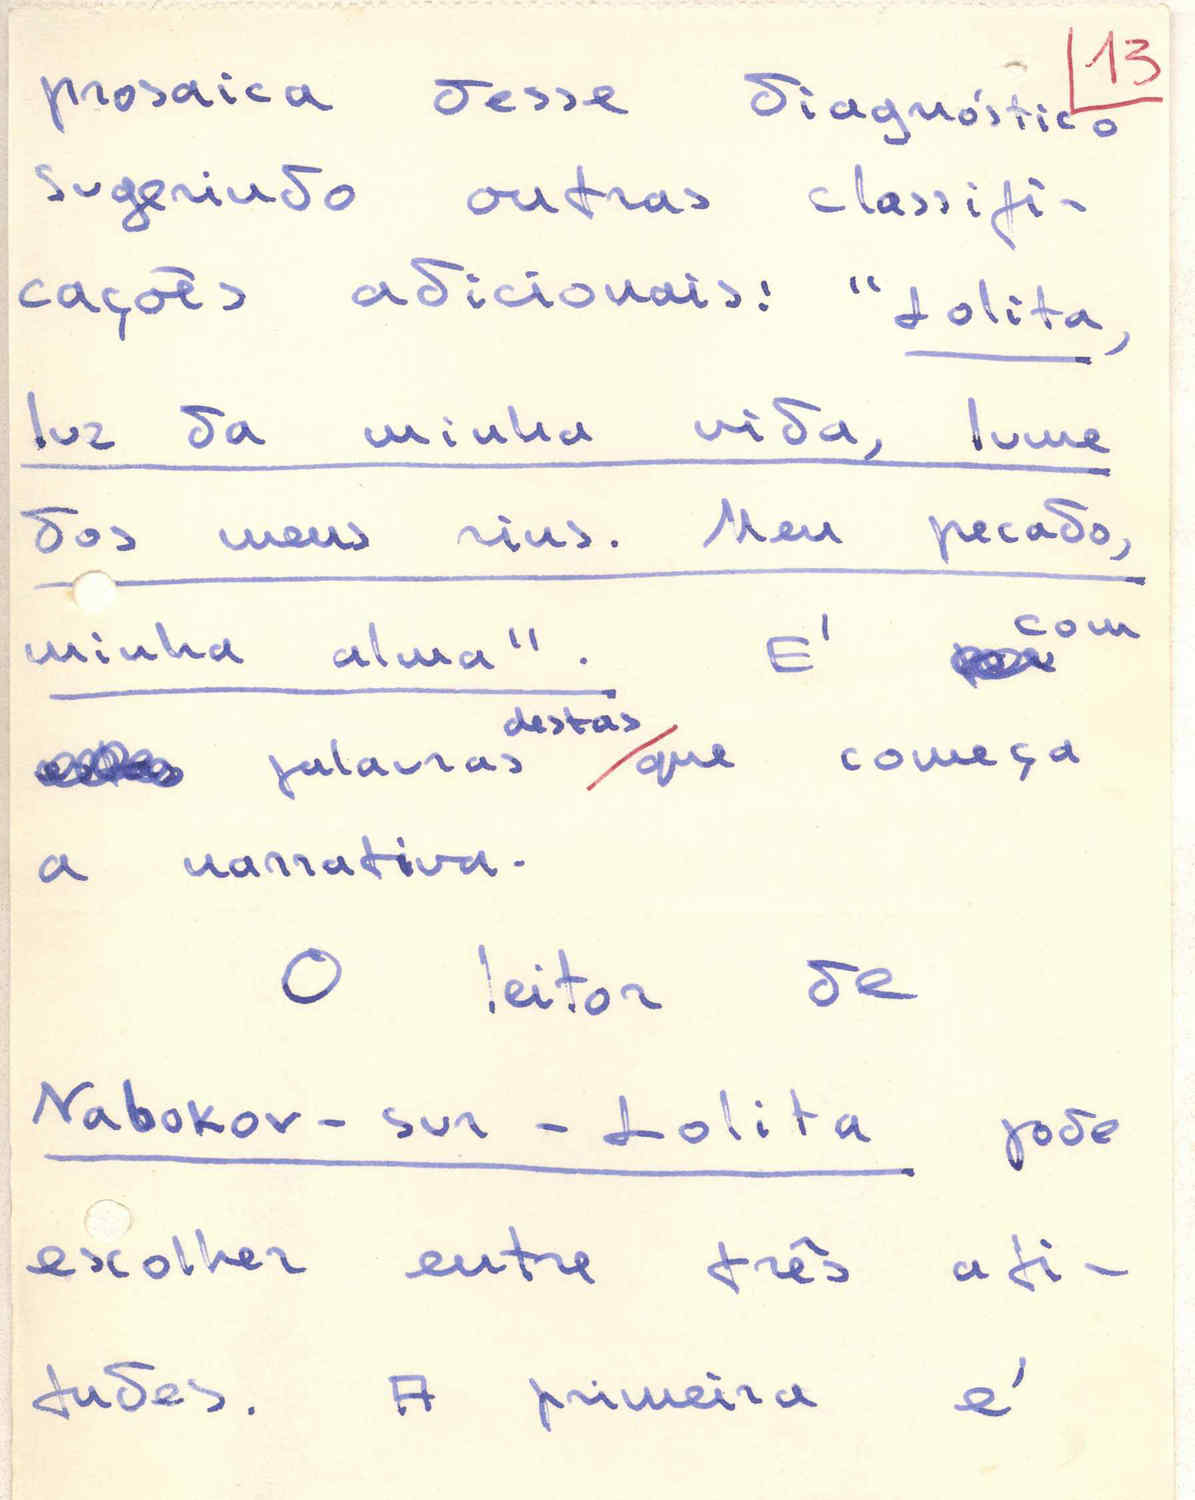 13
prosaica desse diagnóstico
sugerindo outras classifi-
cações adicionais: "Lolita,
luz da minha vida, lume
dos meus rins. Meu pecado,
minha alma". E' com
palavras destas que começa
a narrativa.
O leitor de
Nabokov-sur-Lolita pode
escolher entre três ati-
tudes. A primeira é